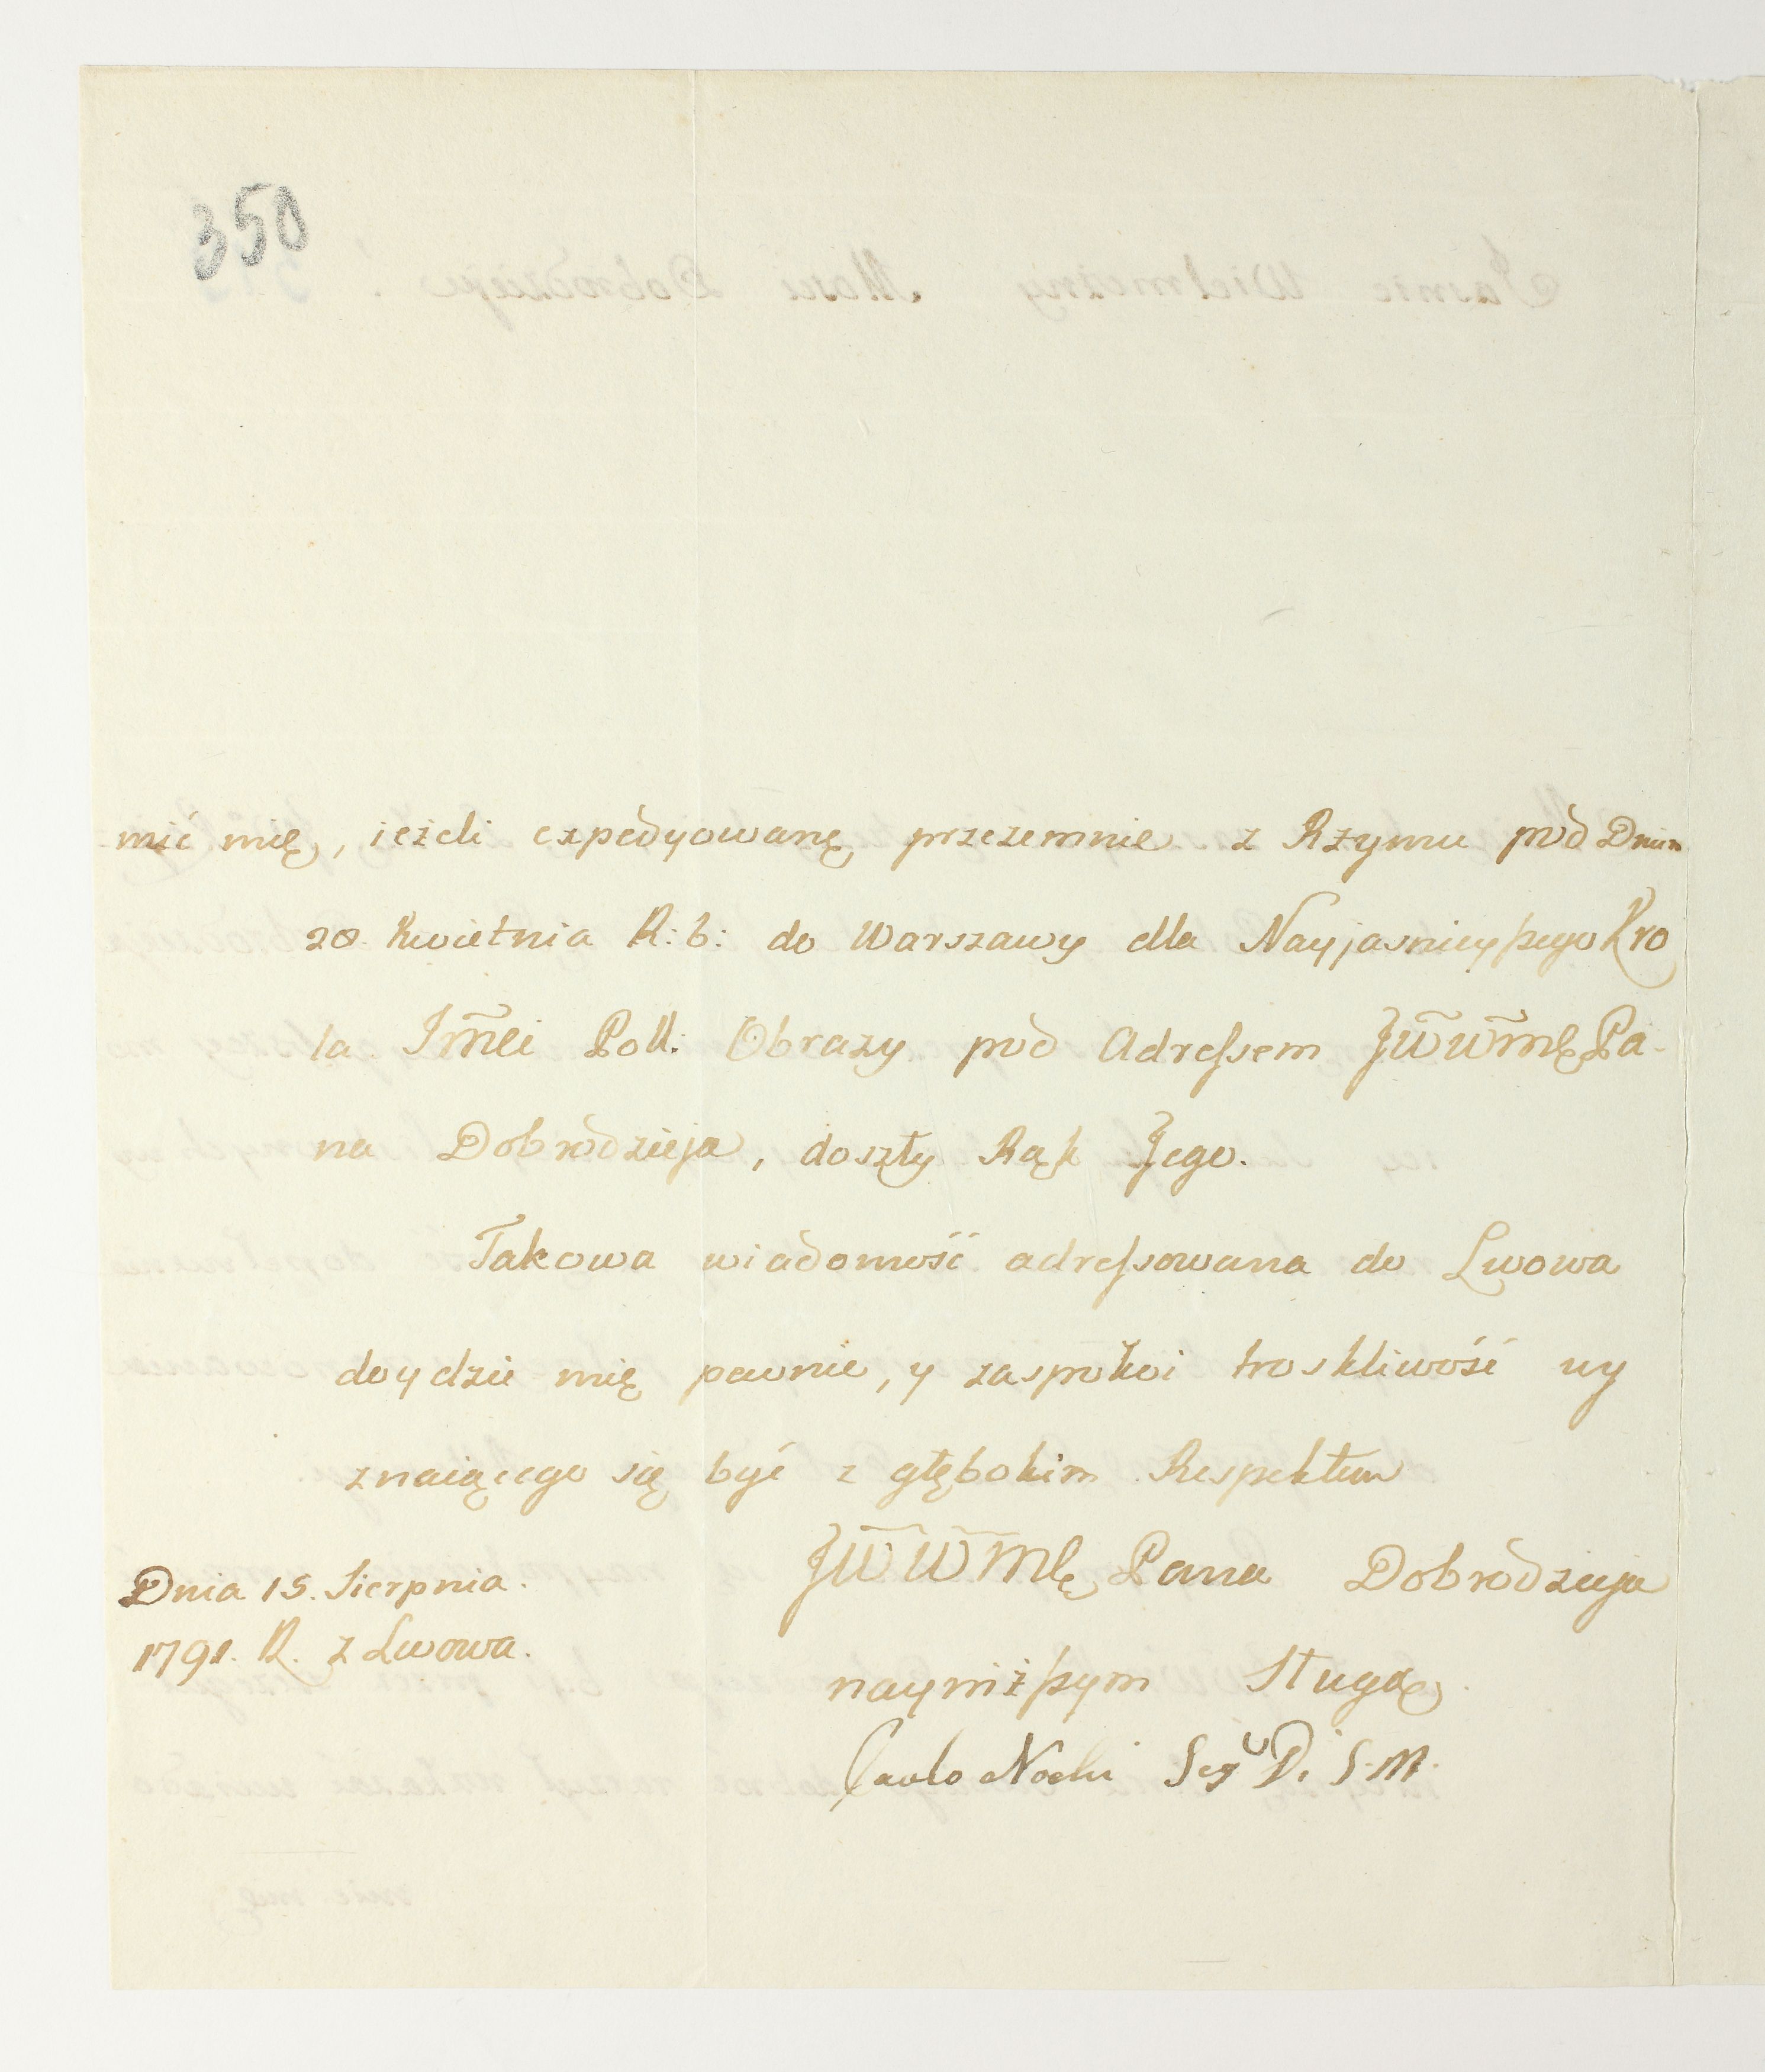 350
mić mię, ieżeli expedyowanę przezemnie z Rzymu pod Dniem
20. Kwietnia R: b: do Warszawy dla Nayjasnieyszego Kro
la Jmći Poll: Obrazy pod Adressem JWWMę Pa-
na Dobrodzieja, doszły Rąk Jego.
Takowa wiadomość adressowana do Lwowa
doydzie mię pewnie, y zaspokoi troskliwość wy
znaiącego się być z głębokim Respektem
JWWMę Pana Dobrodzieja
nayniższym Sługą
Dnia 15. Sierpnia.
1791. R. z Lwowa.
Di S. M.